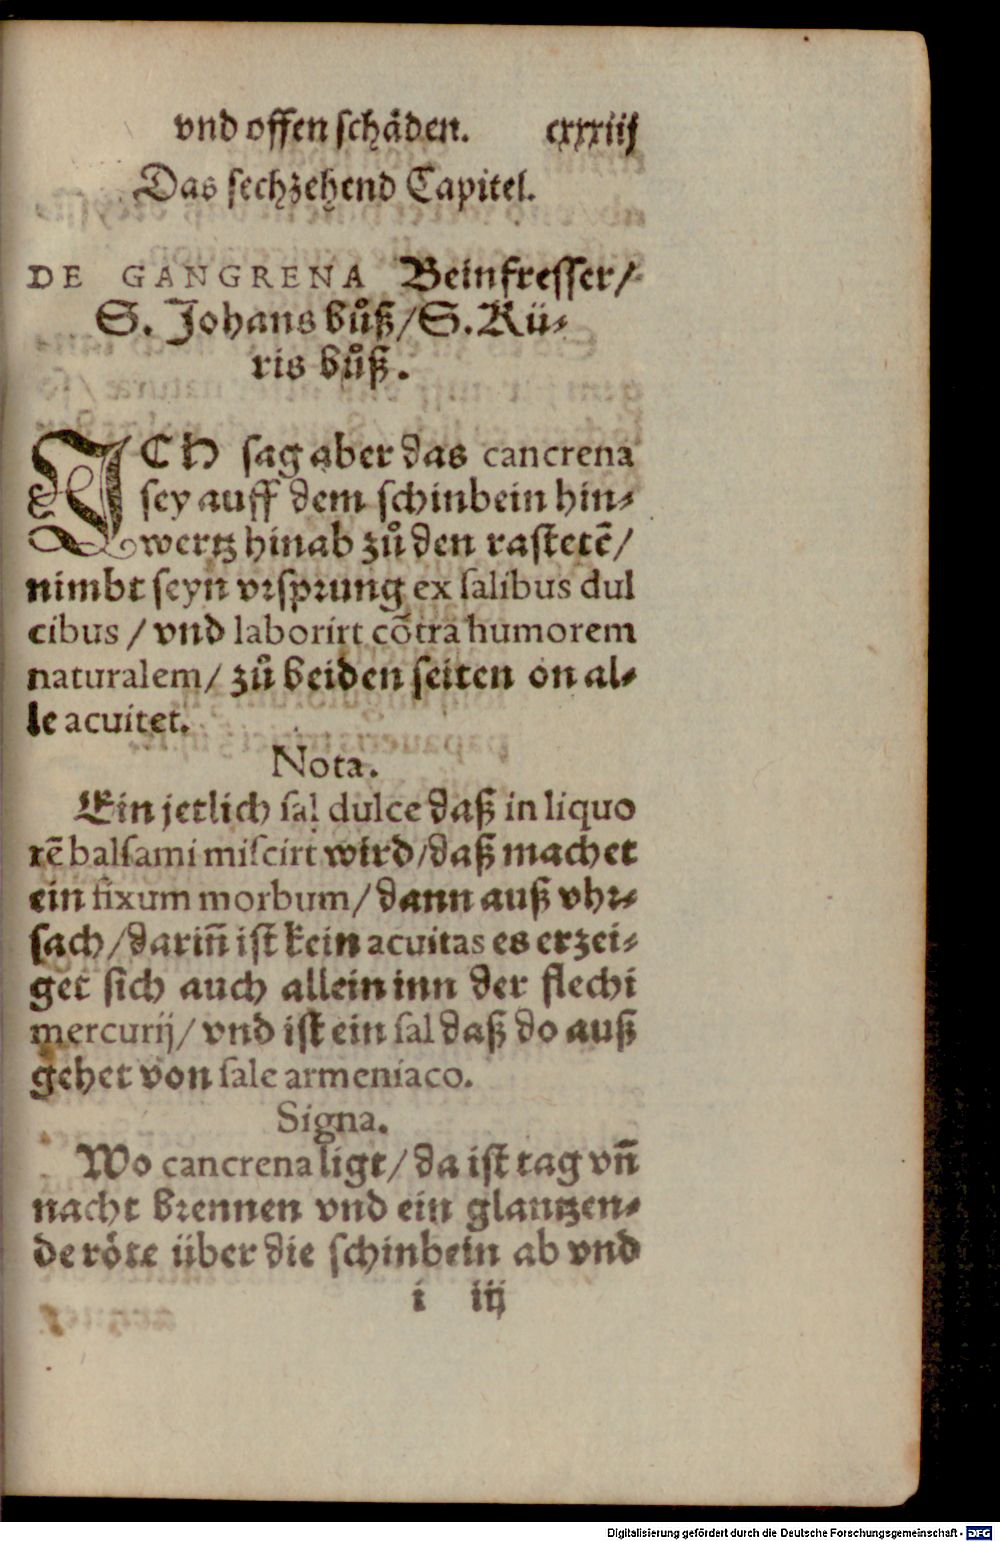 vnd offen schäden. cxxxiij
Das sechzehend Capitel.
DE GANGRENA Beinfresser/
S. Johans bůß/S. Kü⸗
ris bůß.
ICH sag aber das cancrena
sey auff dem schinbein hin⸗
wertz hinab zů den rastetē/
nimbt seyn vrsprung ex salibus dul
cibus / vnd laborirt cōtra humorem
naturalem/ zů beiden seiten on al⸗
le acuitet.
Nota.
Ein jetlich sal dulce daß in liquo
rē balsami miscirt wird/daß machet
ein fixum morbum/ dann auß vhr⸗
sach/darin̄ ist kein acuitas es erzei⸗
get sich auch allein inn der flechi
mercurij/ vnd ist ein sal daß do auß
gehet von sale armeniaco.
Signa.
Wo cancrena ligt/ da ist tag vn̄
nacht brennen vnd ein glantzen⸗
de röte über die schinbein ab vnd
i iij
Digitalisierung gefördert durch die Deutsche Forschungsgemeinschaft - DFG